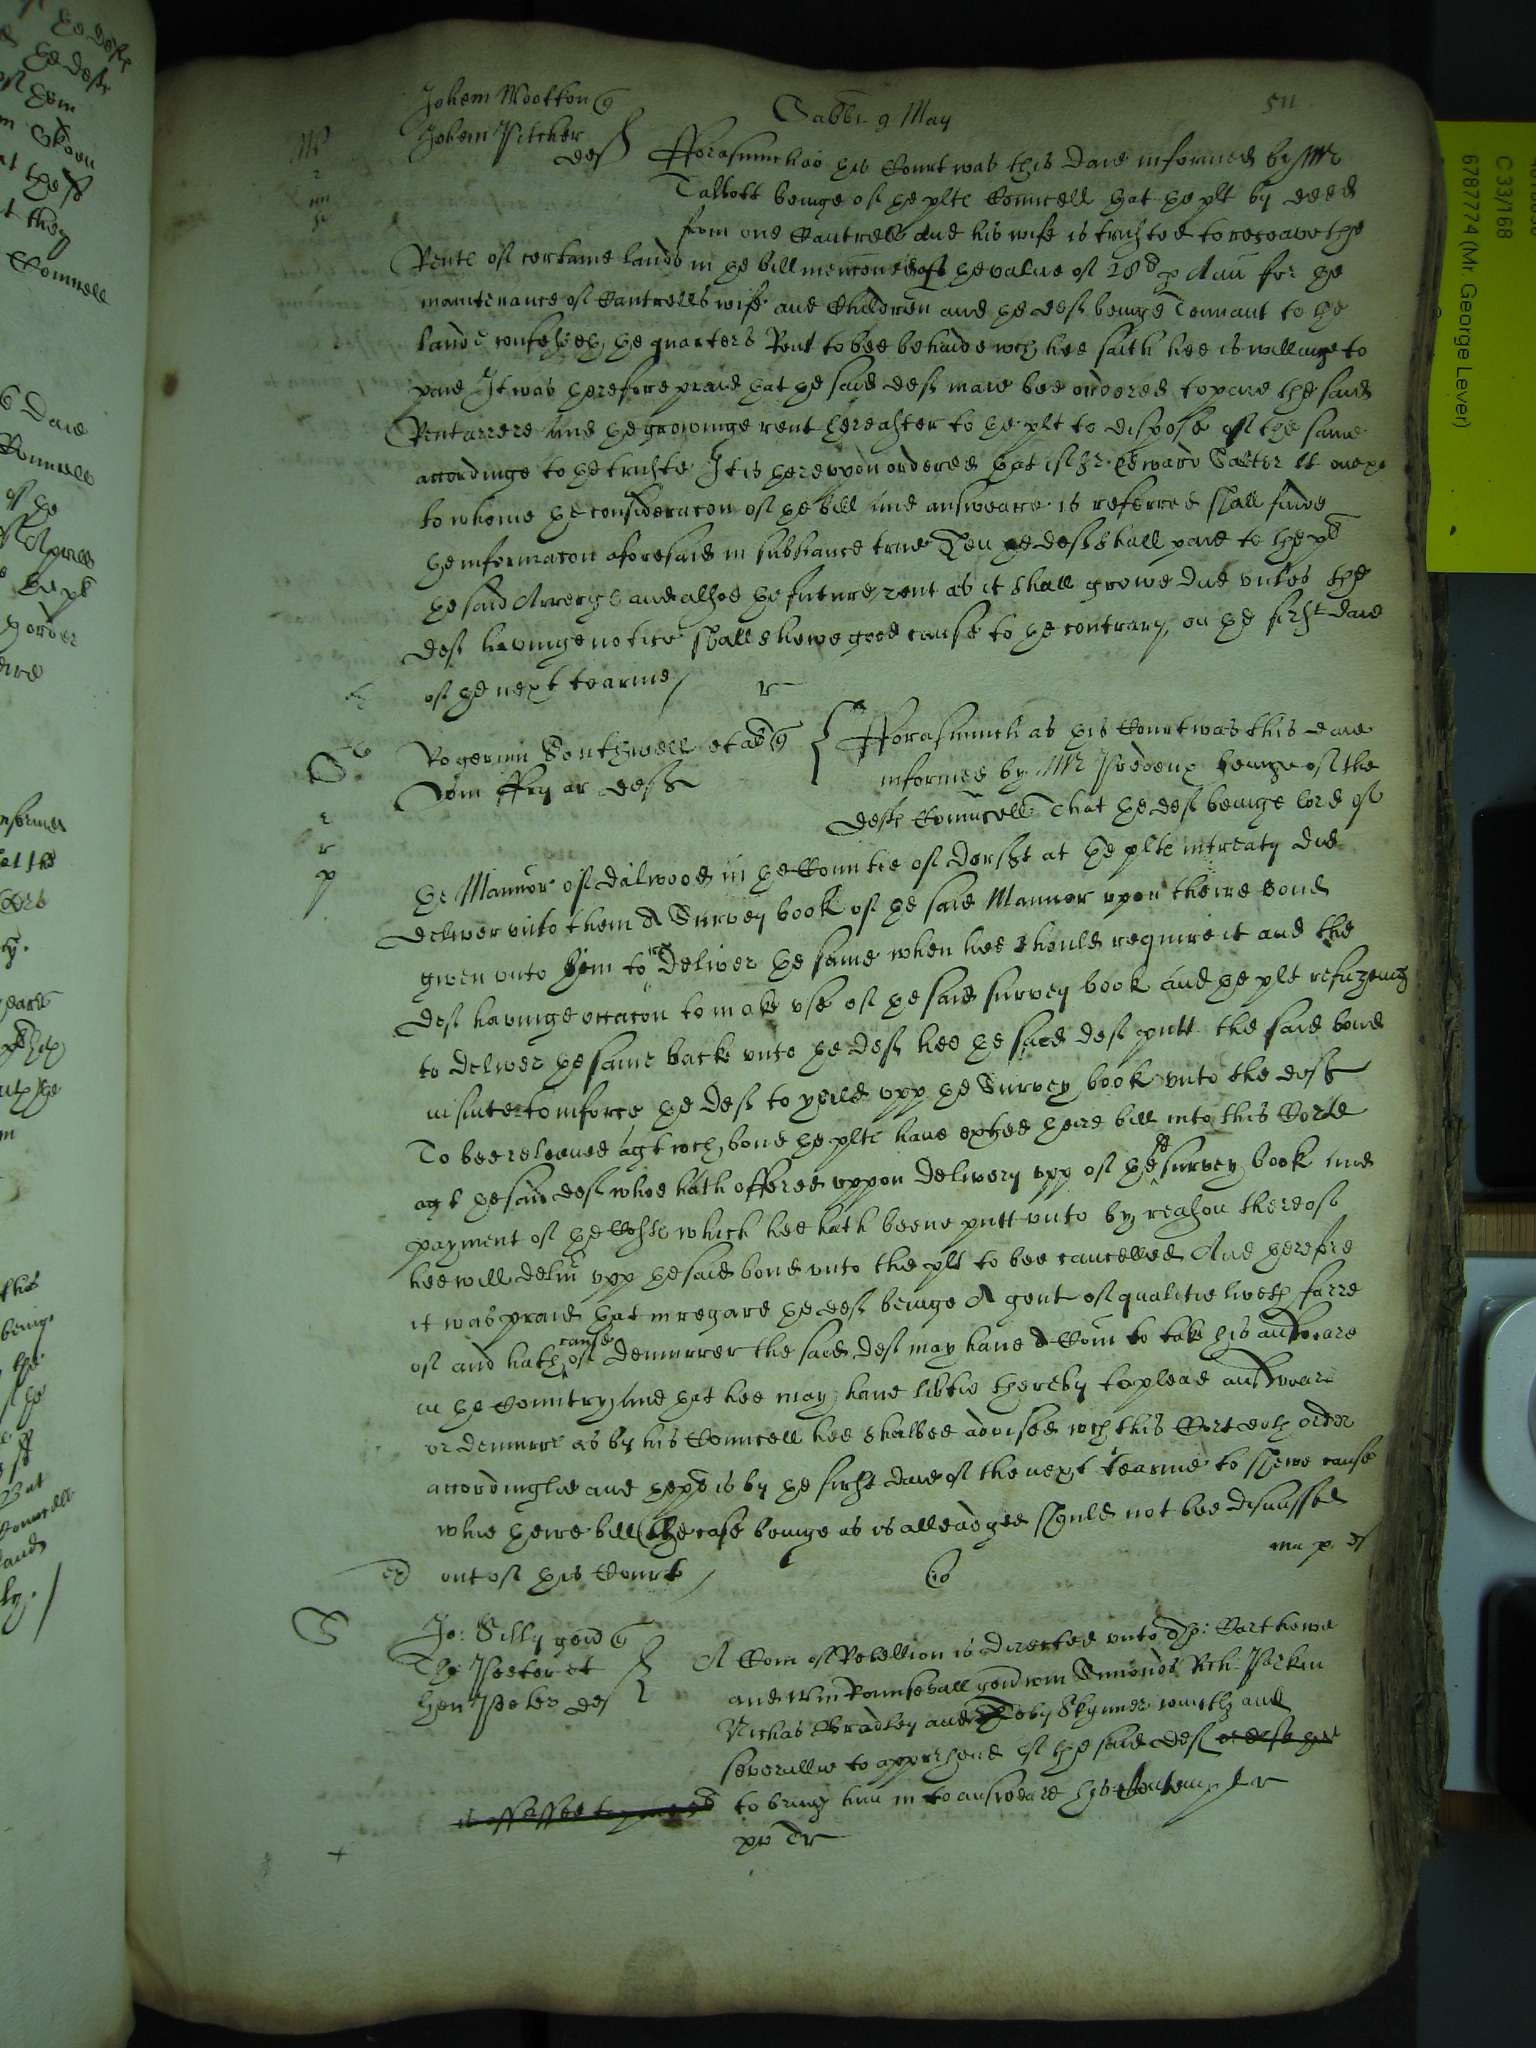 Sabbi 9 May
511
Johem Wootton q
Johem Pitcher
def
Fforasmuch as this Court was this daie informed by Mr
Talbott beinge of the plts Councell that the plt by deed
from one Cantrell and his wife is trusted to receave the
Rents of certaine lands in the bill menconed of the value of 28 p Ann for the
maintenance of Cantrells wife and Children and the def beinge Tennant to the
lands confesseth the quarters Rent to bee behinde wch hee saith hee is willinge to
paie It was therefore praied that the said def maie bee ordered to paie the said
Rent arrere and the growinge rent hereafter to the plt to dispose of the same
accordinge to the truste It is thereupon ordered that if Sr Edward Salter kt one
to whome the consideracon of the bill and answeare is referred shall finde
the informacon aforesaid in substance true Then the def shall paie to the pt
the said Arrerages and alsoe the future rent as it shall growe due unles the
def havinge notice shall shewe good cause to the contrary, on the first daie
of the next tearme /
r
Rogerum Southwell et al q
Dom Ffry ar deft
Fforasmuch as this Court was this daie
informed by Mr Predeux beinge of the
defts Councell That the def beinge lord of
the Mannor of Dalwood in the Countie of Dorset at the plts intreaty did
deliver unto them A Survey book of the said Mannor upon theire bond
given unto him to redeliver the same when hee should require it and the
def havinge occacon to make use of the said survey book and the plt refuzeing
to deliver the same back unto the def hee the said def putt the said bond
in suite to inforce the def to yeild upp the Survey book unto the deft
To bee releeved agt wch bond the plts have exhed theire bill into this Corte
agt the said def whoe hath offered uppon delivery upp of the sd survey book and
payment of the Costs which hee hath beene putt unto by reason thereof
hee will deliver upp the said bond unto the plt to bee cancelled And therefore
it was praied that in regard the def beinge A gent of qualitie liveth farre
of and hath cause of demurrer the said def may have A Com to take his answeare
in the Countrey and that hee may have libtie thereby to plead answeare
or demurre as by his Councell hee shalbee advised wch this Cort doth order
accordinglie and the pt is by the first daie of the next tearme to shewe cause
whie theire bill (the case beinge as is alleadged should not bee dismissed
out of this Court /
Jo: Silly gen q
Tho Peeter et
Hen Peeter def
A Com of Rebellion is directed unto Carthewe
and Wm Rounsevall gen Wm Simonds Rich Parkin
Nichas Bradley and Toby Skynner jointly and
severallie to apprehend of the said def
to bring him in to answeare his Contempt